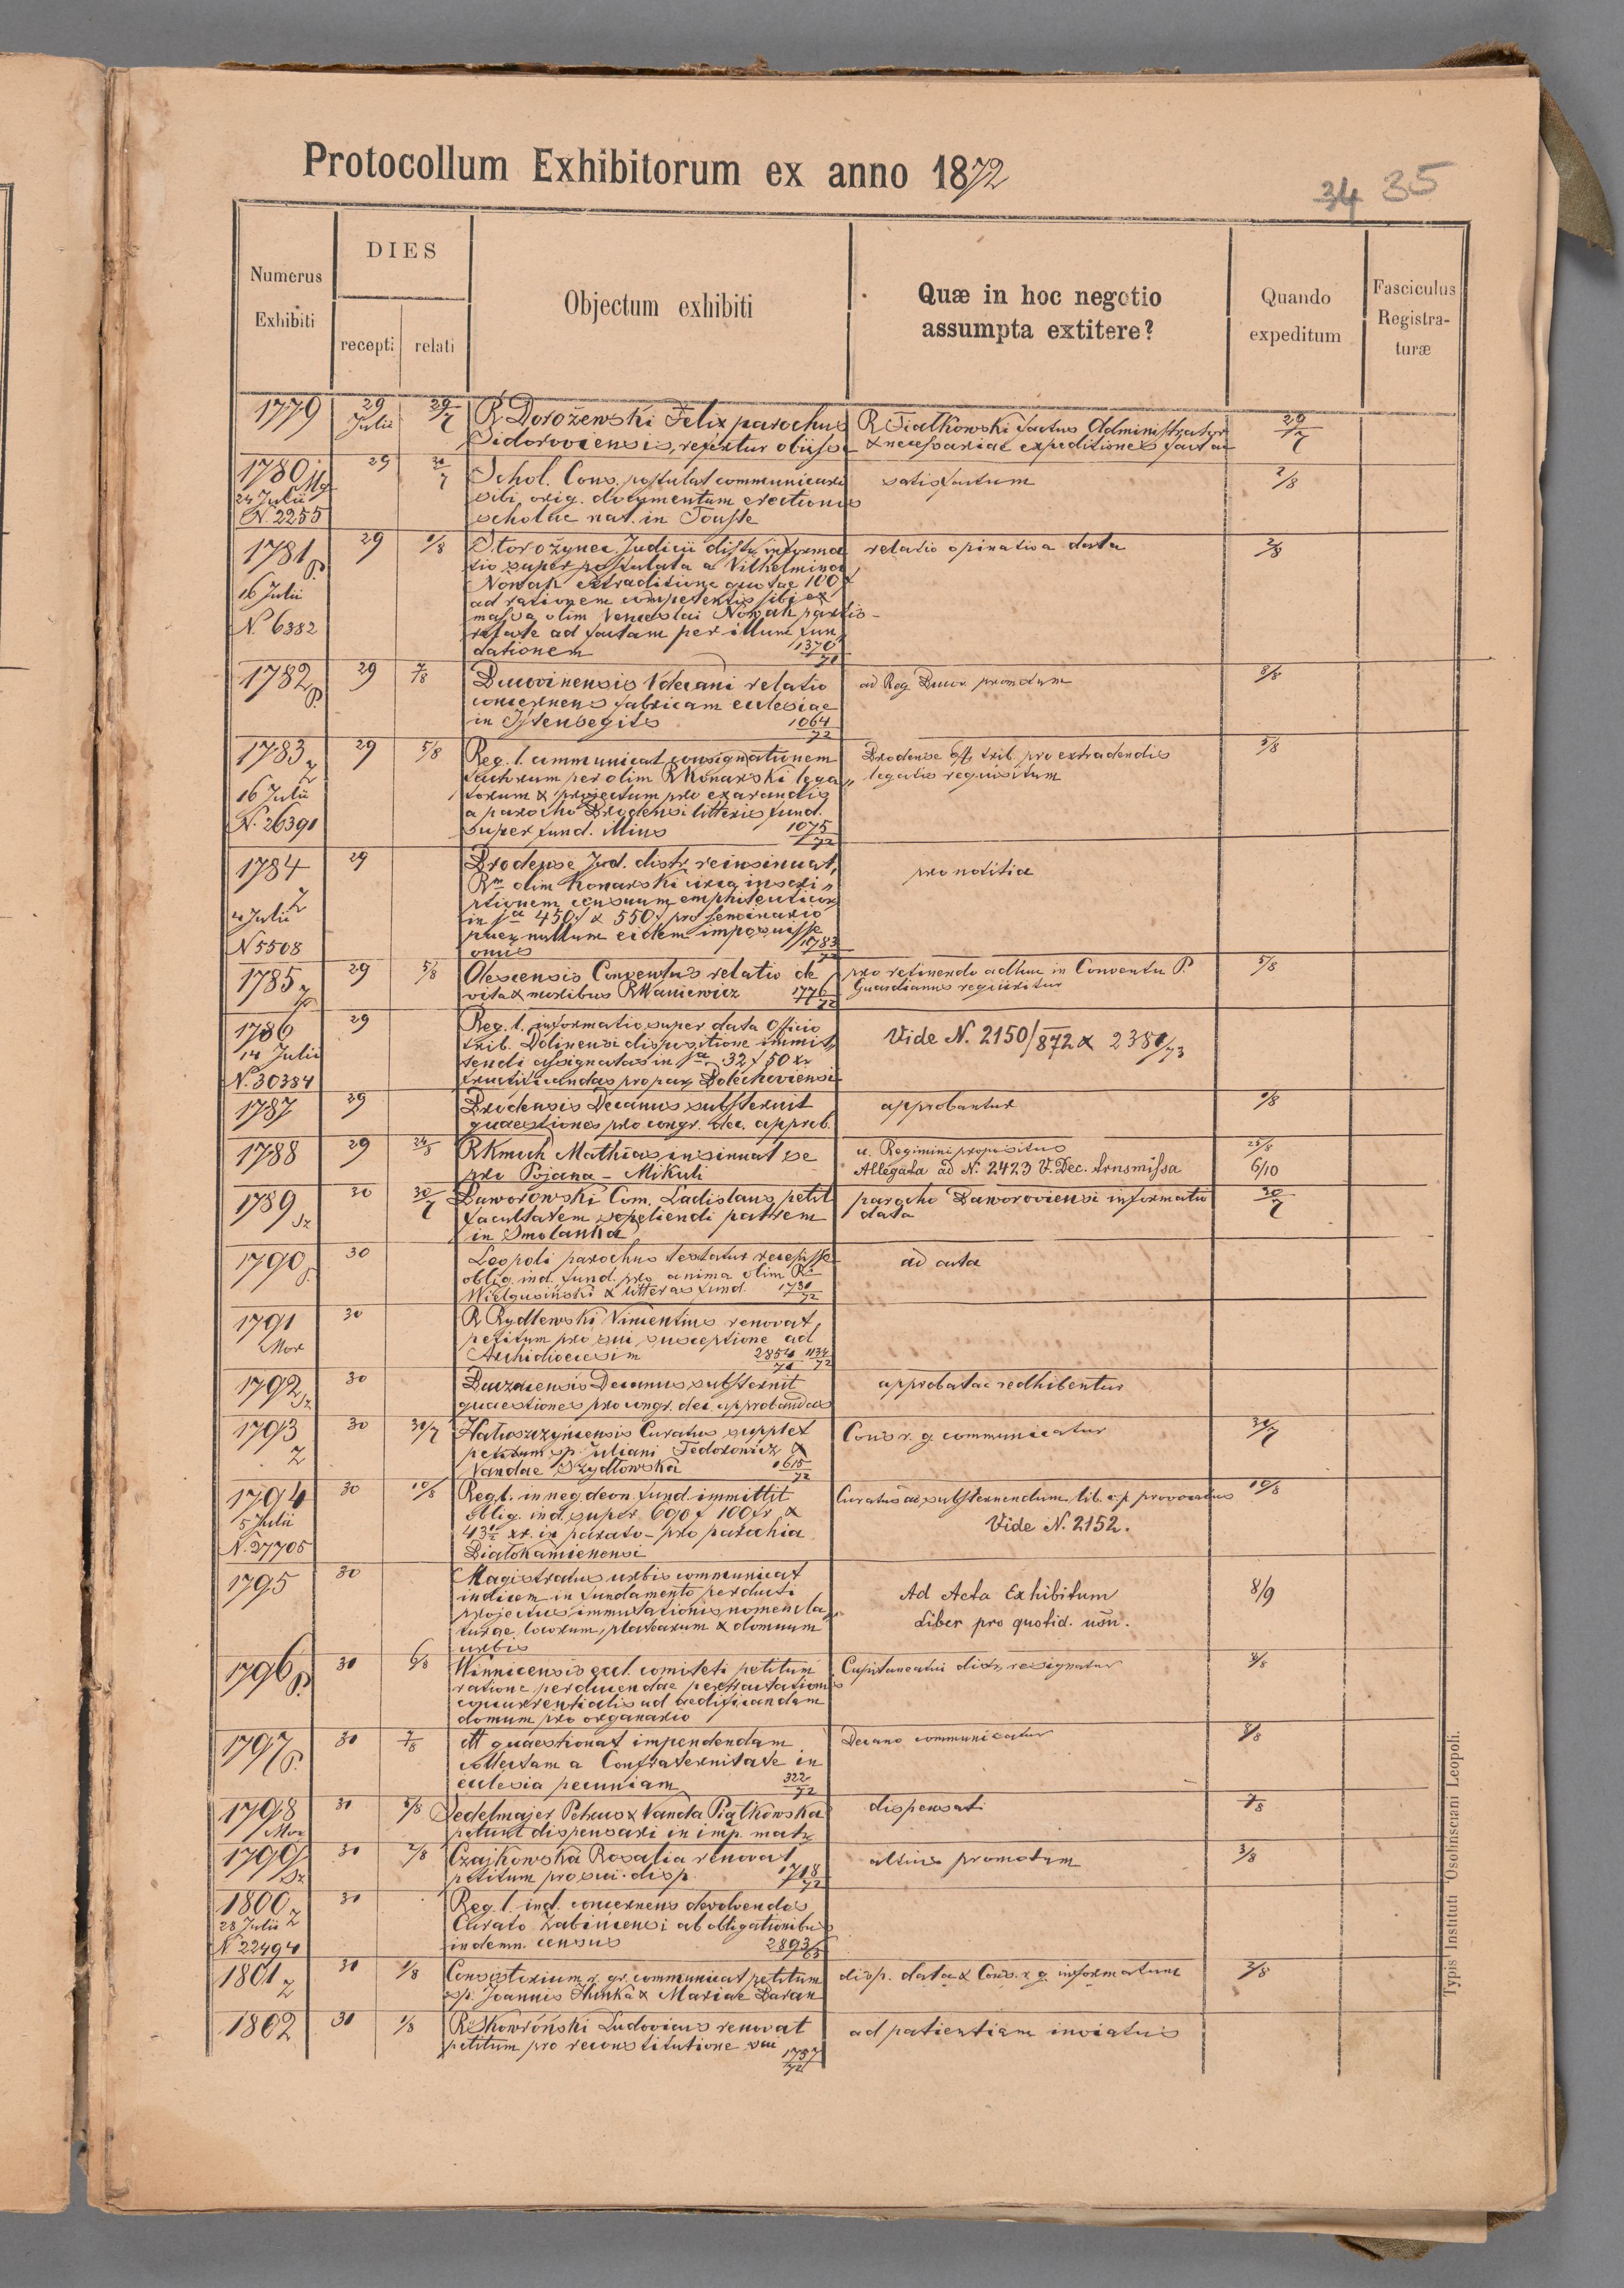 Protocollum Exhibitorum ex anno 1872
34 35
Numerus Exhibiti
DIES
recepti
relati
Objectum exhibiti
Quæ in hoc negotio assumpta extitere?
Quando expeditum
Fasciculus Registra-turæ
1779 29 Julii 29/7 R Dorożewski Felix parochus R Fiałkowski factus Administrator 29/7
Sidoroviensis, refertur obiisse & necessariae expeditiones factae
1780 29 Schol. Cons. postulat communicari satisfactum 2/8
24 Julii sibi orig. documentum erectionis
N. 2255 scholae nat. in Touste
1781 29 1/8 Storożynec. Judicii distr. informa relatio opinativa data 2/8
P. tio super postulata a Vilhelmina
16 Julii Nowak extraditione quotae 100 f
ad rationem competentis sibi ex
N. 6382 massa olim Venceslai Nowak partis
ad factam per illum fun
dationem 1370/71
1782 29 7/8 Bucovinensis Vdecani relatio ad Reg. Bucov. promotum 8/8
P. concernens fabricam ecclesiae
in Istensegits 1064/72
1783 29 5/8 Reg. l. communicat consignationem Brodense off. trib. pro extradendis 5/8
z per olim R Konarski lega legatis requisitum
16 Julii torum & projectum pro exarandis
N. 26391 a parocho Brodensi litteris fund.
super fund. illius 1075/72
1784 29 Brodense Jud. distr. reinsinuat, pro notitia
Rm olim Konarski circa inscri
z ptionem censuum emphiteuticor
4 Julii in sa 450 f & 550 f pro seminario
N 5508 nullum eidem imposuisse
onus 1783/72
1785 29 5/8 Olescensis Conventus relatio de pro retinendo adhuc in Conventu P. 5/8
vita & moribus R Maniewicz 1776/72 Guardianus requiritur
1786 29 Reg. l. informatio super data Officio Vide N. 2150/872 & 2380/73
14 Julii trib. Dolinensi dispositione immit
tendi assignatas in sa 32 f 50 xr
N. 30384 fructificandas pro par. Bolechoviensi
1787 29 Brodensis Decanus substernit approbantur 1/8
quaestiones pro congr. dec. approb.
1788 29 24/8 R Kmuch Mathias insinuat se Regimini propositus 25/8
pro Pojana - Mikuli Allegata ad N. 2423 V. Dec. trnsmissa 6/10
1789 30 30/7 Baworowski Com. Ladislaus petit parocho Baworoviensi informatio 30/7
Sz facultatem sepeliendi patrem data
in Smolanka
1790 30 Leopoli parochus testatur recepisse ad acta
P. oblig. ind. fund. pro anima olim Ri
& litteras fund. 1731/72
1791 30 R Rydlewski Vincentius renovat
Mor petitum pro sui susceptione ad
Archidiocesim 2854/71 1134/72
1792 30 Buczacensis Decanus substernit approbatae redhibentur
Sz quaestiones pro congr. dec. approbandas
1793 30 30/7 Hałuszczyńcensis Curatus supplet Cons r. g. communicatur 30/7
z petitum sp. Juliani Fedorowicz &
Vandae Szydłowska 1615/72
1794 30 10/8 Reg. l. in neg. deon. fund. immittit Curatus ad substernendum lib. c. p. provocatus 10/8
5 Julii oblig. ind. super 690 f 100 fr & Vide N. 2152.
43½ xr. in parato - pro parochia
N. 27705 Białokamienensi
1795 30 Magistratus urbis communicat
indicem in fundamento perducti Ad Acta Exhibitum 8/9
projectus immutationis nomencla Liber pro quotid. usu.
turae locorum, platearum & domuum
urbis
1796 30 6/8 Winnicensis eccl. comiteti petitum Capitaneatui distr. resignatur 8/8
P. ratione perducendae pertractationis
concurrentialis ad aedificandam
domum pro organario
1797 30 7/8 " quaestionat impendendam Decano communicatur 8/8
P. collectam a Confraternitate in
ecclesia pecuniam 322/72
1798 30 5/8 Sedelmajer Petrus & Vanda Piątkowska dispensati 7/8
Mor petunt dispensari in imp. matr.
1799 30 2/8 Czajkowska Rosalia renovat altius promotum 3/8
Sz petitum pro sui disp. 1718/72
1800 30 Reg. l. ind. concernens devolvendos
z Curato Żabincensi ab obligationibus
28 Julii
N 22494 indemn. census 2893/65
1801 30 1/8 Consistorium r. gr. communicat petitum disp. data & Cons. r. g. informatum 2/8
z sp. Joannis & Mariae Baran
1802 30 1/8 R Skowroński Ludovicus renovat ad patientiam inviatus
petitum pro reconstitutione sui 1737/72
Typis Instituti Ossolinsciani Leopoli.